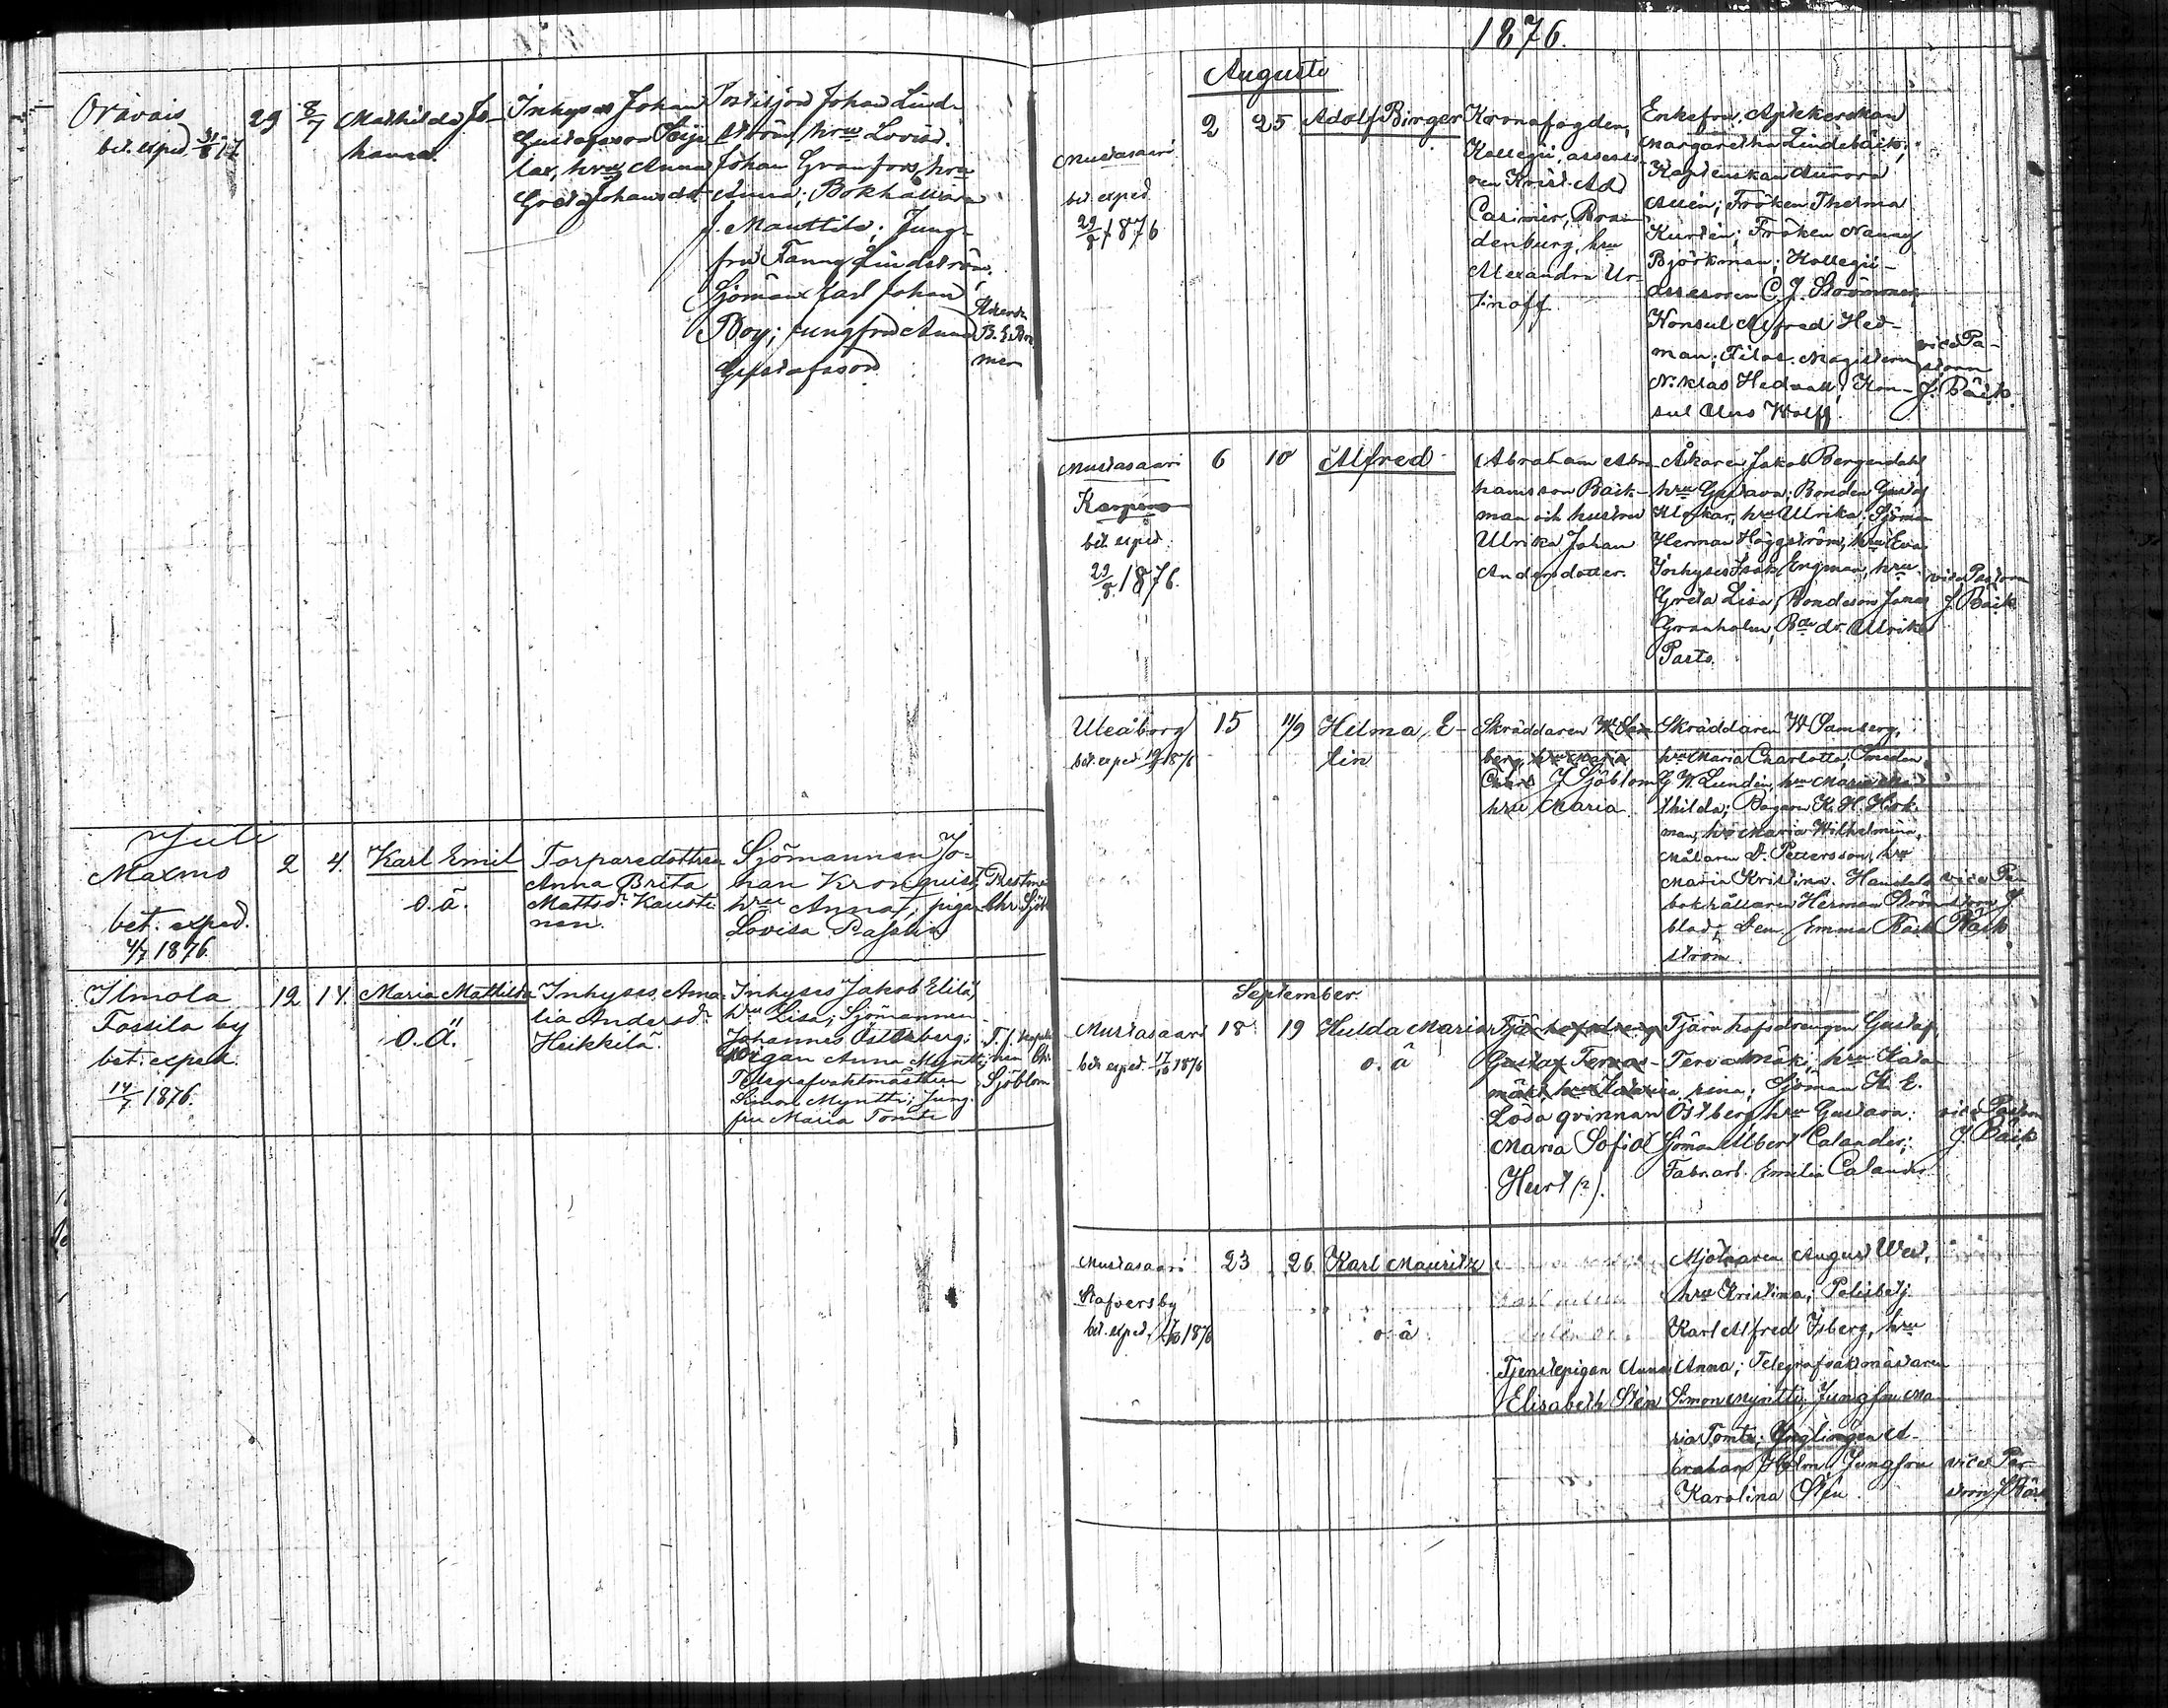 Oravais
bet. exped. 31/8 77
29 8/7 Mathilda Jo-
hanna
Inhyses Johan
Gustafsson
lax, hru Anna
Greta Johansdt
Postiljon Johan Lind-
ström, hru Lovisa.
Johan Granfors, hru
Anna; Bokhållare
J. Manttila; Jung-
fru Fanny Lindström,
Sjöman Karl Johan
Roy; jungfru Anna
Gustafsson
B. E.
Juli
Maxmo
bet. exped.
4/7 1876.
2 4. Karl Emil
o. ä.
Torparedottren
Anna Brita
Mattsdr Kausti-
nen.
Sjömannen Jo-
han Kronqvist,
hru Anna, pigan
Lovisa
Ilmola
Tossila by
bet. exped.
14/7 1876.
12 14 Maria Mathilda
O. Ä.
Inhyses Ama-
lia Andersdr
Heikkilä.
Inhyses Jakob Elilä,
hru Lisa; Sjömannen
Johannes Österberg;
Pigan Anna Myntti,
Telegrafvaktmästren
Simon Myntti; Jung-
fru Maria Tomti
T. f. kapella-
nen Chr.
Sjöblom
1876.
Augusti
Mustasaari
bet. exped.
29/8 1876
2 25 Adolf Birger
Kronofogden,
Kollegii assess-
oren Krist. Ad.
Casimir Bran-
denburg, hru
Alexandra Ur-
tinoff.
Enkefru Apthekerskan
Margaretha Lindebäck;
Kaptenskan Aurora
Alén; Fröken Thelma
Kurtén; Fröken Nanny
Björkman; Kollegii-
assessoren C. J.
Konsul Alfred Hed-
man; Filos. Magistern
Niklas Hedvall; Kon-
sul Aug Wolff.
vice Pa-
storn
J. Bäck.
Mustasaari
Karperö
bet. exped.
29/8 1876.
6 10 Alfred
Abraham Abra-
hamsson Back-
man och hustru
Ulrika Johan
Andersdotter.
Åkaren Jakob Bergendahl,
hru Gustava; Bonden Gustaf
Klockar, hru Ulrika; Sjöman
Herman Häggström, hru Eva
Inhyses Isak Engman, hru
Greta Lisa; Bondeson Jonas
Granholm, Bde dr. Ulrika
Parts.
vice Pastorn
J. Bäck
Uleåborg
bet. exped. 19/9 1876
15 11/9 Hilma E-
lin
Skräddaren W. Sam-
berg, hru Maria
Charl J Sjöblom
hru Maria
Skräddaren W Samberg,
hru Maria Charlotta; Smeden
G W. Lundén, hru Maria Ma-
thilda; Bagaren K. H. Hok-
man, hru Maria Wilhelmina,
Målaren D. Pettersson, hru
Maria Kristina. Handels
bokhållaren Herman Ström-
blad; Dem. Emma Bäck-
ström.
vice Pa-
storn J.
Bäck
September.
Mustasaari
bet. exped. 17/10 1876
18 19 Hulda Maria
o. ä
Tjärhofsdreng
Gustaf Tervas-
mäki hru Kata-
Lösa qvinnan
Maria Sofia
Hurt (?).
Tjärhofsdrengen Gustaf
Tervasmäki, hru Kata-
rina; Sjöman K. E.
Östberg, hru Gustava.
Sjöman Albert Calander;
Fabr.arb. Emilia Calander.
vice Pastorn
J. Bäck
Mustasaari
Stafversby
bet. exped. 17/10 1876
23 26 Karl Mauritz
o. ä
Tjenstepigan Anna
Elisabeth Sten
Mjölnaren August West,
hru Kristina; Polisbetj.
Karl Alfred Isberg, hru
Anna; Telegrafvaktmästaren
Simon Myntti; Jungfru Ma-
ria Tomti; Ynglingen A-
braham Holm, Jungfru
Karolina Stén.
vice Pa-
storn J Bäck